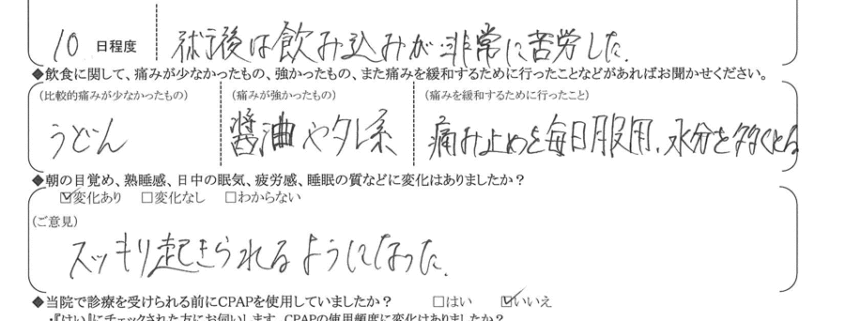 10 日程度 術後は飲み込みが非常に苦労した.
◆飲食に関して、痛みが少なかったもの、強かったもの、また痛みを緩和するために行ったことなどがあればお聞かせください。
(比較的痛みが少なかったもの) (痛みが強かったもの) (痛みを緩和するために行ったこと)
うどん 醤油やタレ系 痛み止めを毎日服用、水分を多くとる
◆朝の目覚め、熟睡感、日中の眠気、疲労感、睡眠の質などに変化はありましたか?
☑変化あり □変化なし □わからない
(ご意見)
スッキリ起きられるようになった.
◆当院で診療を受けられる前にCPAPを使用していましたか? □はい ☑いいえ
・『はい』にチェックされた方にお伺いします。CPAPの使用頻度に変化はありましたか?